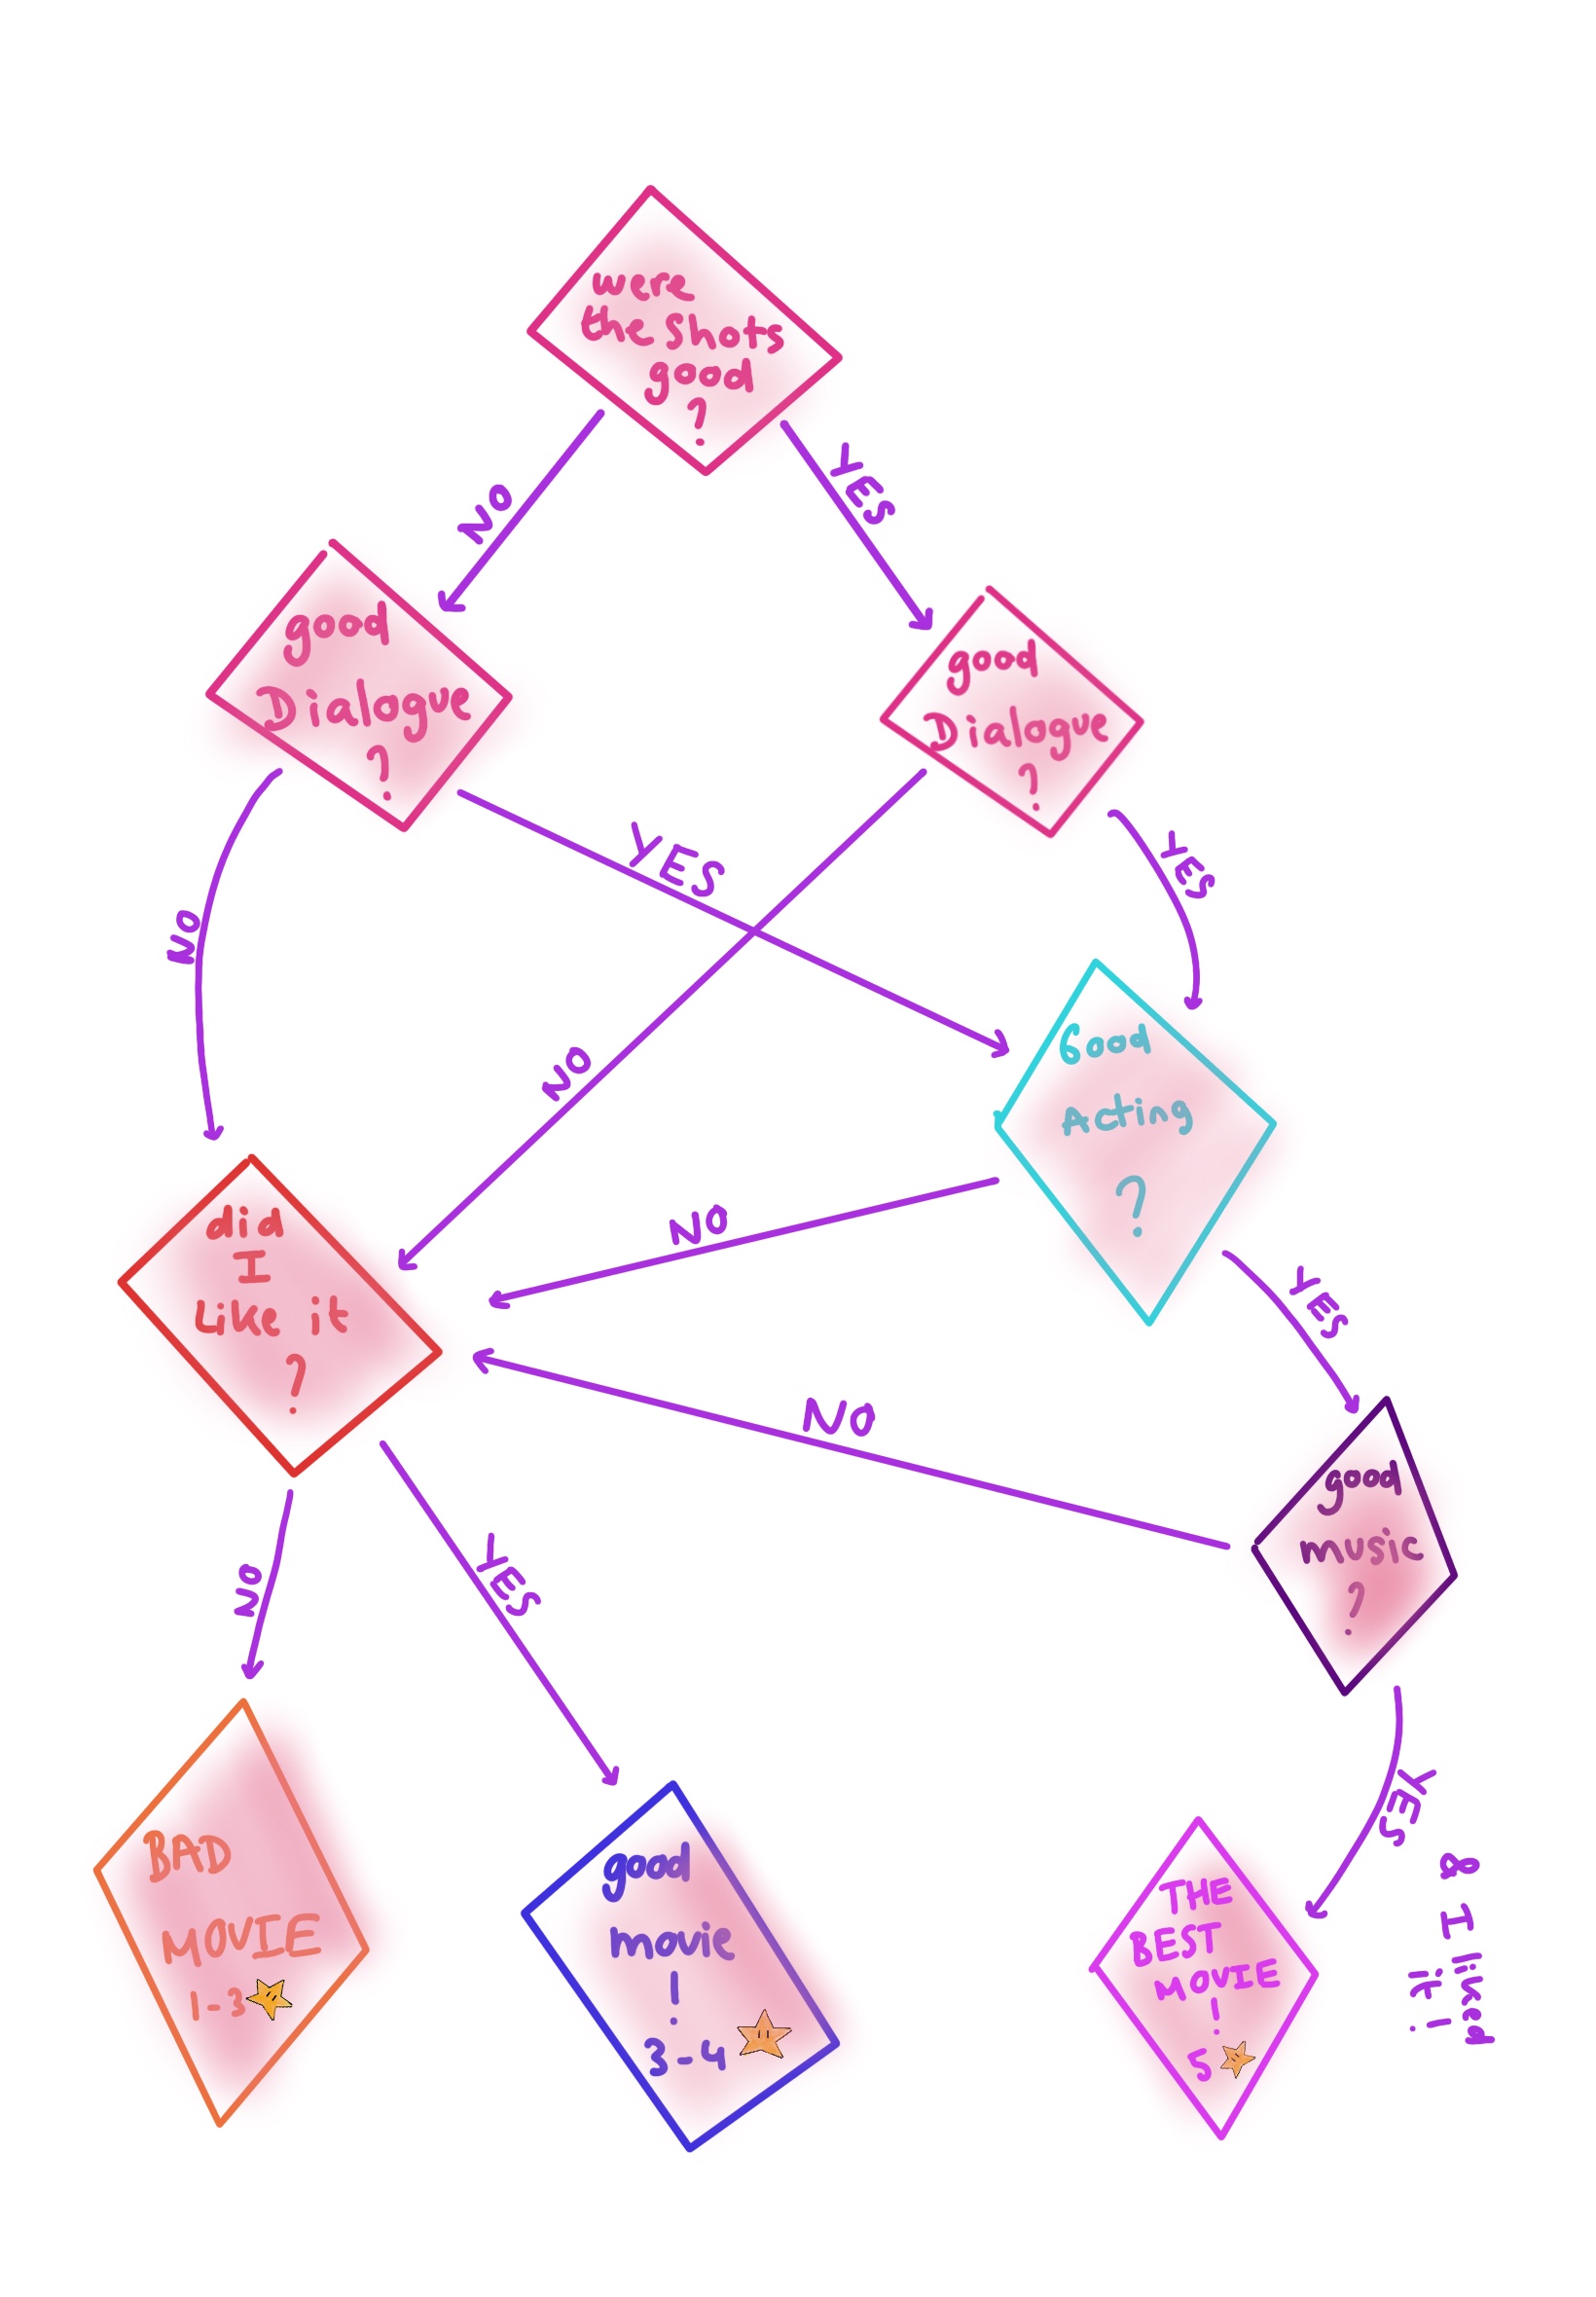 were
the shots
good
?
NO
YES
good
Dialogue
?
good
Dialogue
?
NO
YES
NO
YES
Good
Acting
?
did
I
Like it
?
NO
YES
NO
good
music
?
NO
YES
YES
& I liked
it!
BAD
MOVIE
1-3
good
movie
!
3-4
THE
BEST
MOVIE
!
5